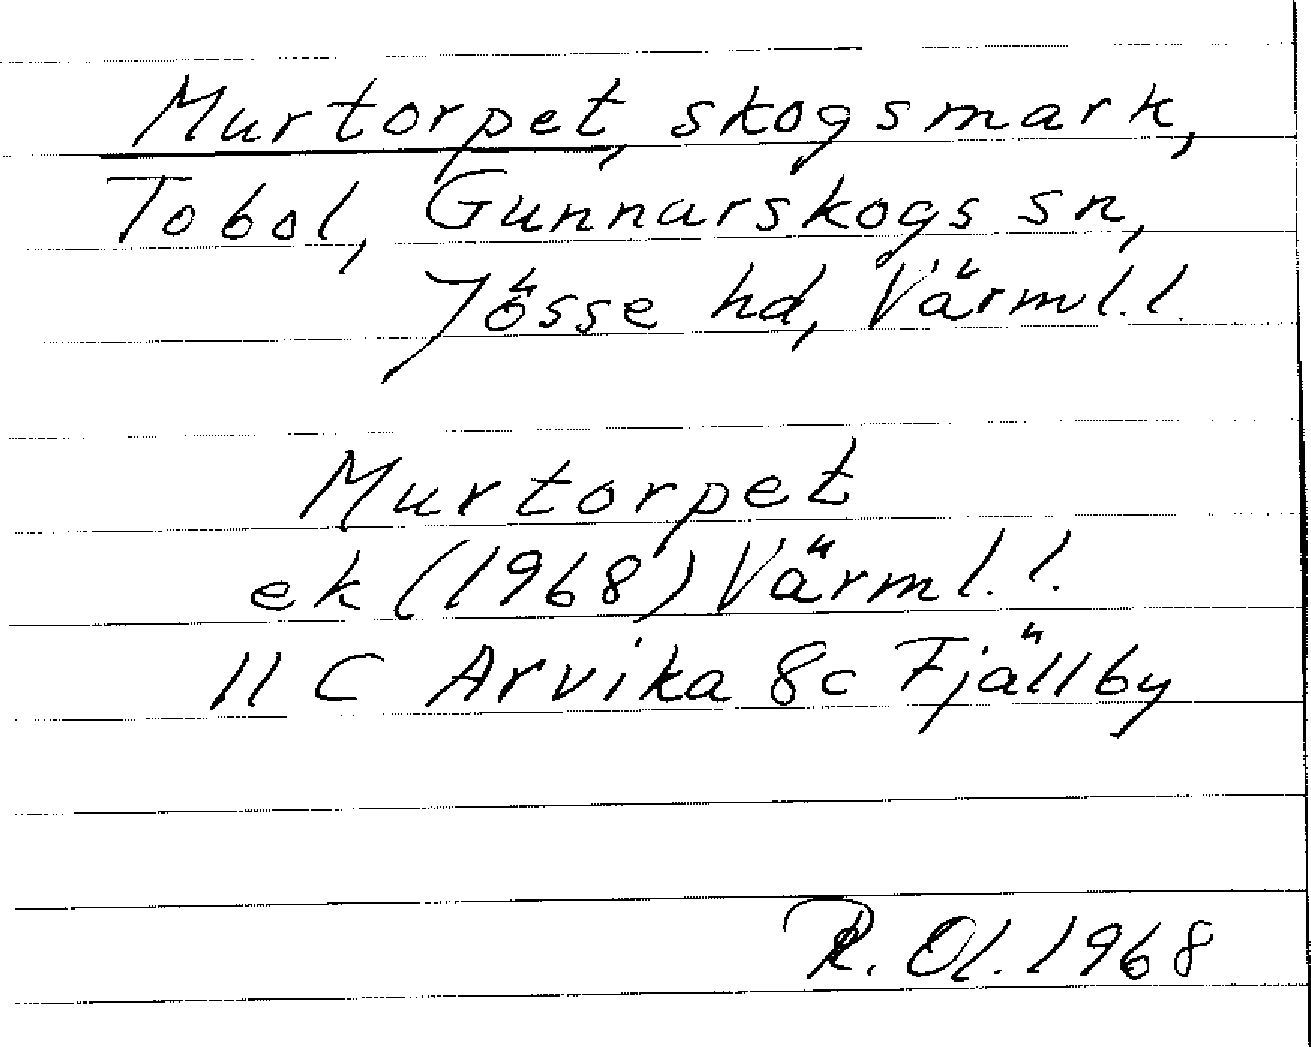 Murtorpet, skogsmark,
Tobol, Gunnarskogs sn,
Jösse hd, Värml.l.
Murtorpet
ek (1968) Värml.l.
11 C Arvika 8c Fjällby
R. Ol. 1968